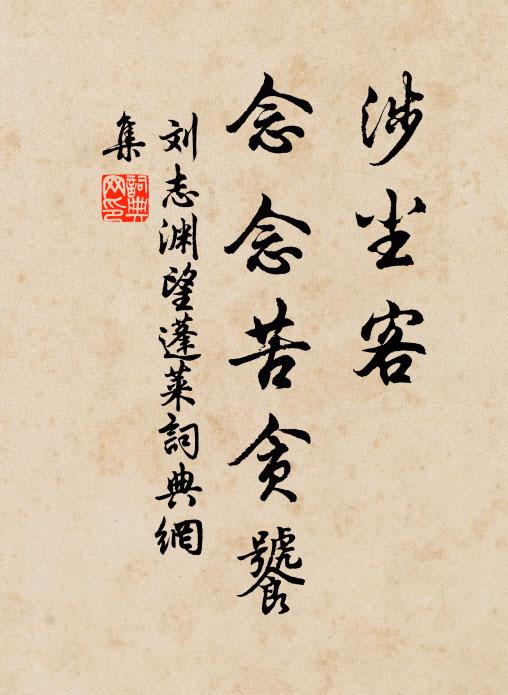 涉尘客
念念苦贪饕
刘志渊望蓬莱词典網
集
詞典
网印